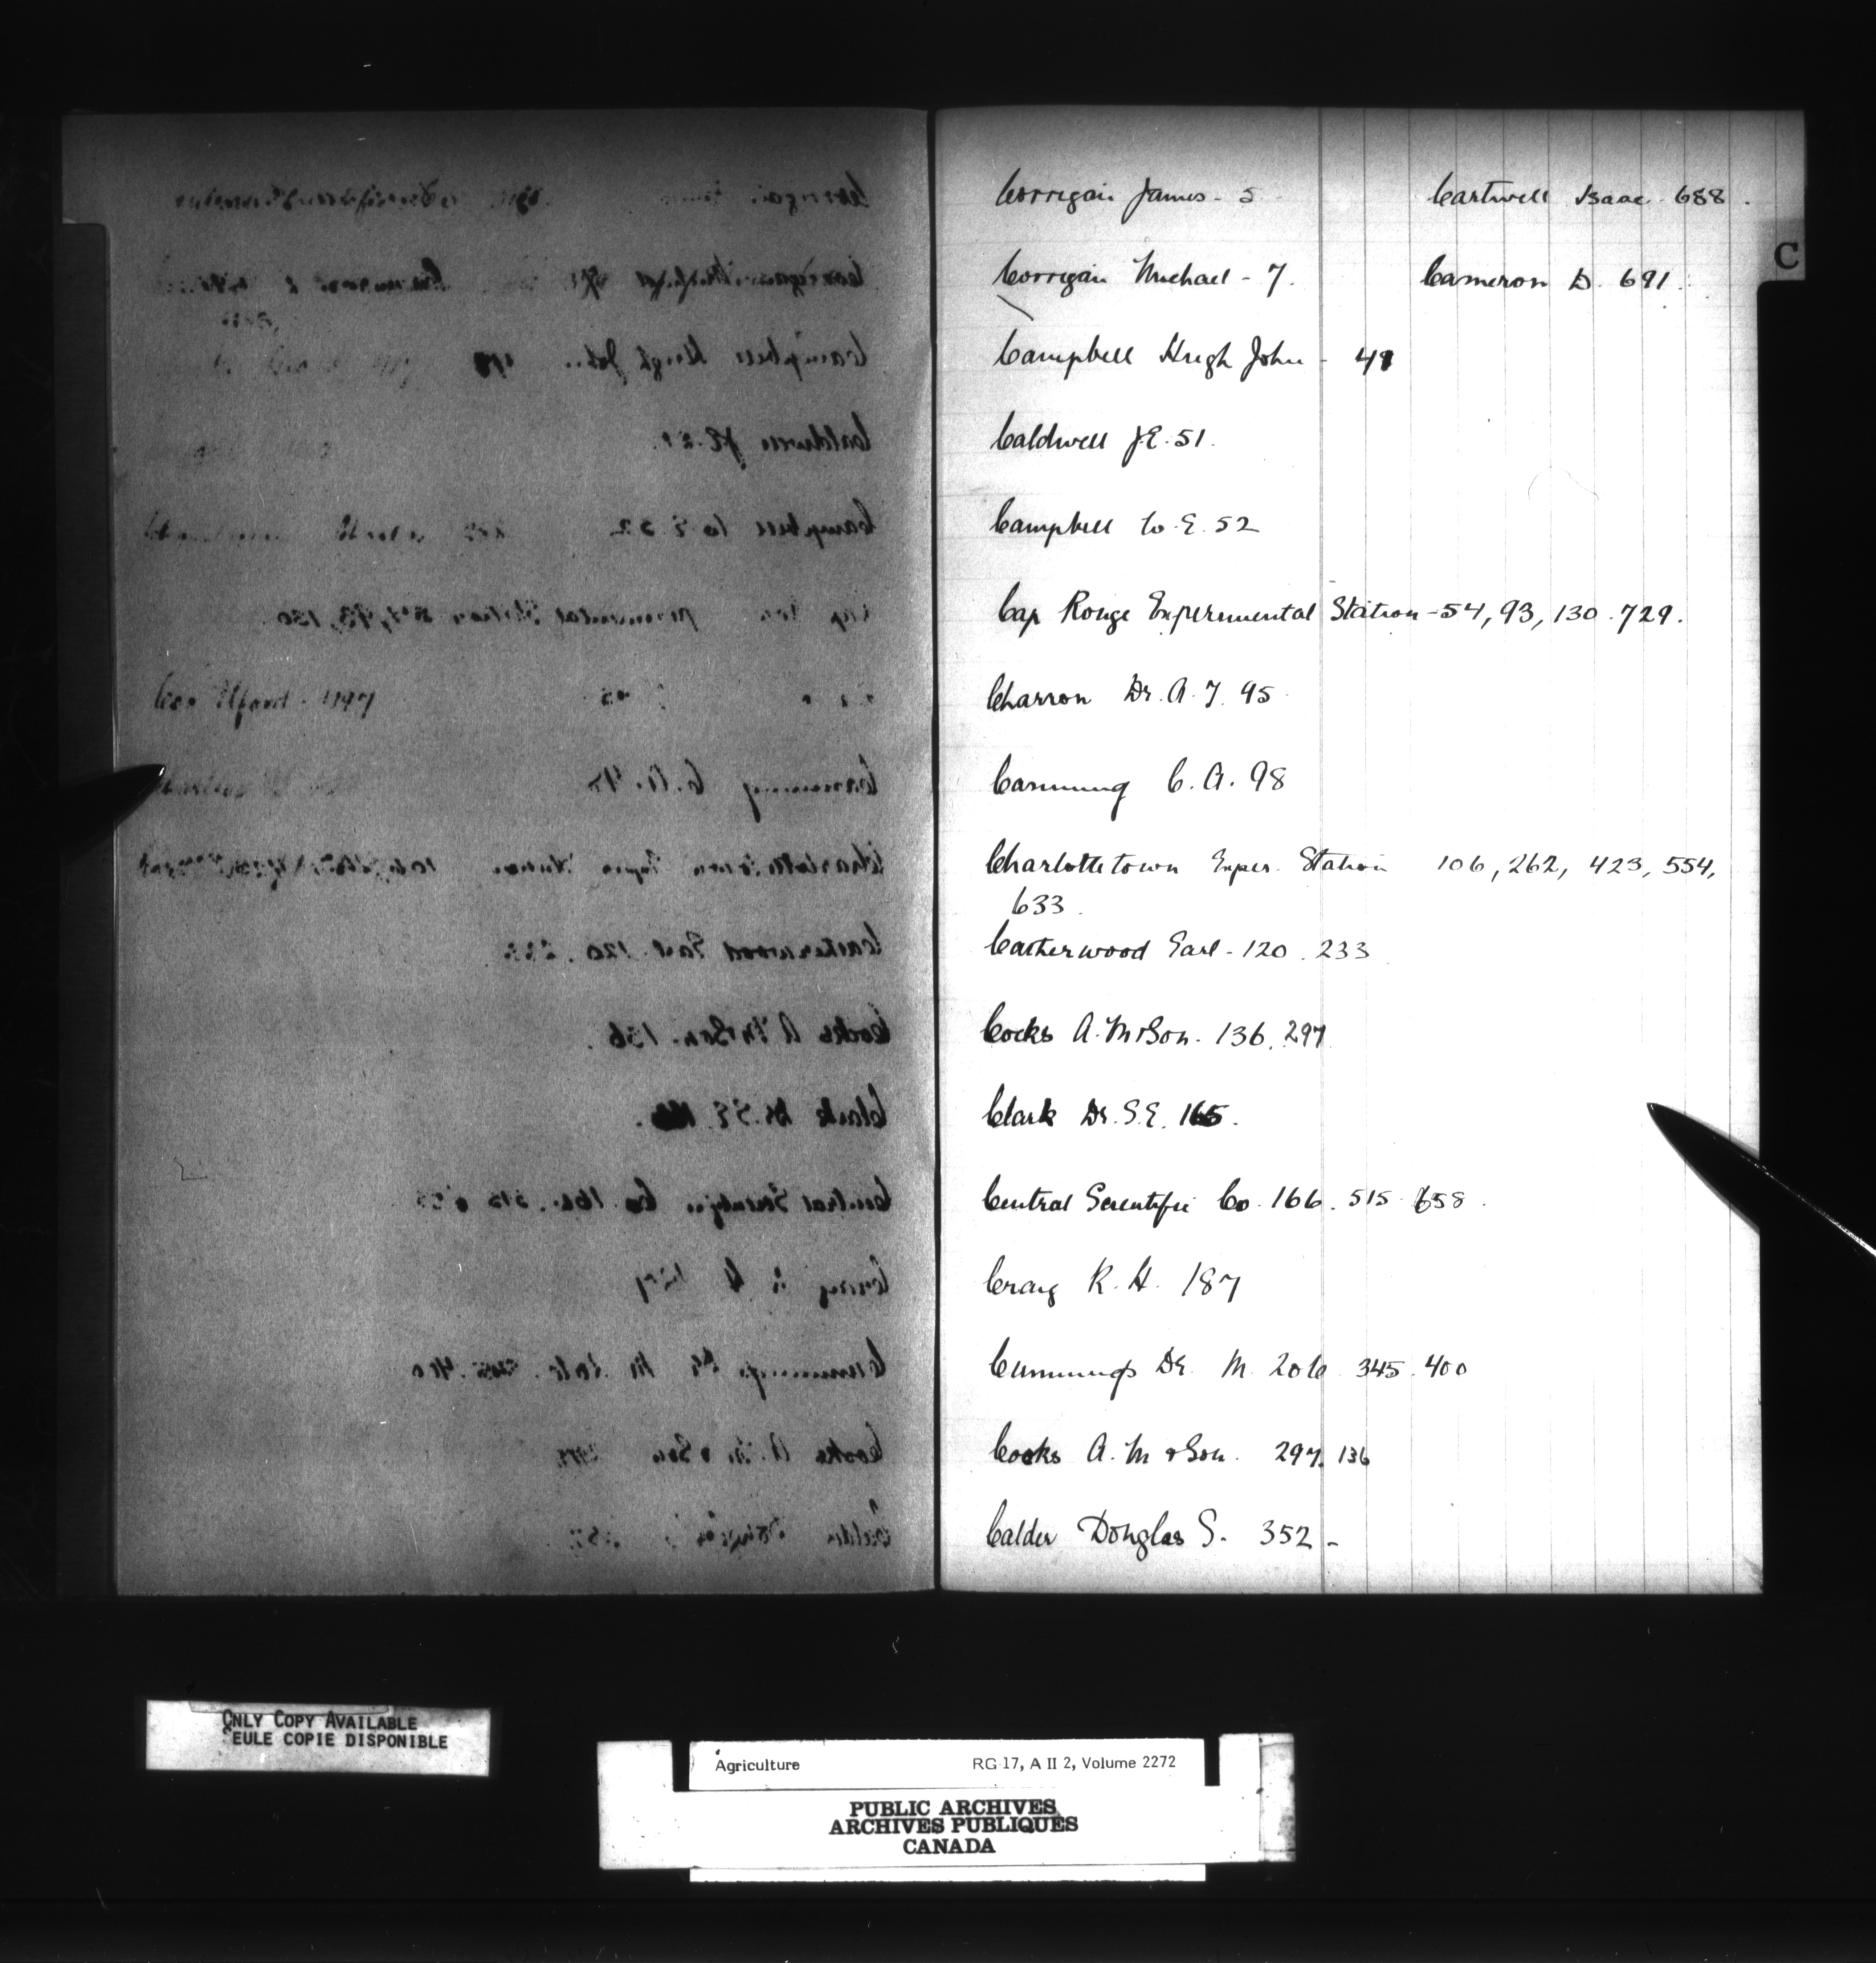 Corrigan James - 5
Cartwell Isaac 688.
C
Corrigan Michael - 7.
Cameron D. 691.
Campbell Hugh John - 49
Caldwell J.E. 51.
Campbell W. E. 52
Cap Rouge Experimental Station - 54, 93, 130. 729.
Charron Dr. A. T. 95
Canning C. A. 98
Charlottetown Exper. Station 106, 262, 423, 554,
633.
Catherwood Earl - 120. 233
Cocks A. M & Son. 136. 297
Clark Dr. S. E. 165.
Central Scientific Co. 166. 515. 658.
Craig R. H. 187
Cummings Dr. M. 206. 345. 400
Cooks A. M & Son. 297. 136
Calder Douglas S. 352 -
ONLY COPY AVAILABLE
SEULE COPIE DISPONIBLE
Agriculture RG 17, A II 2, Volume 2272
PUBLIC ARCHIVES
ARCHIVES PUBLIQUES
CANADA